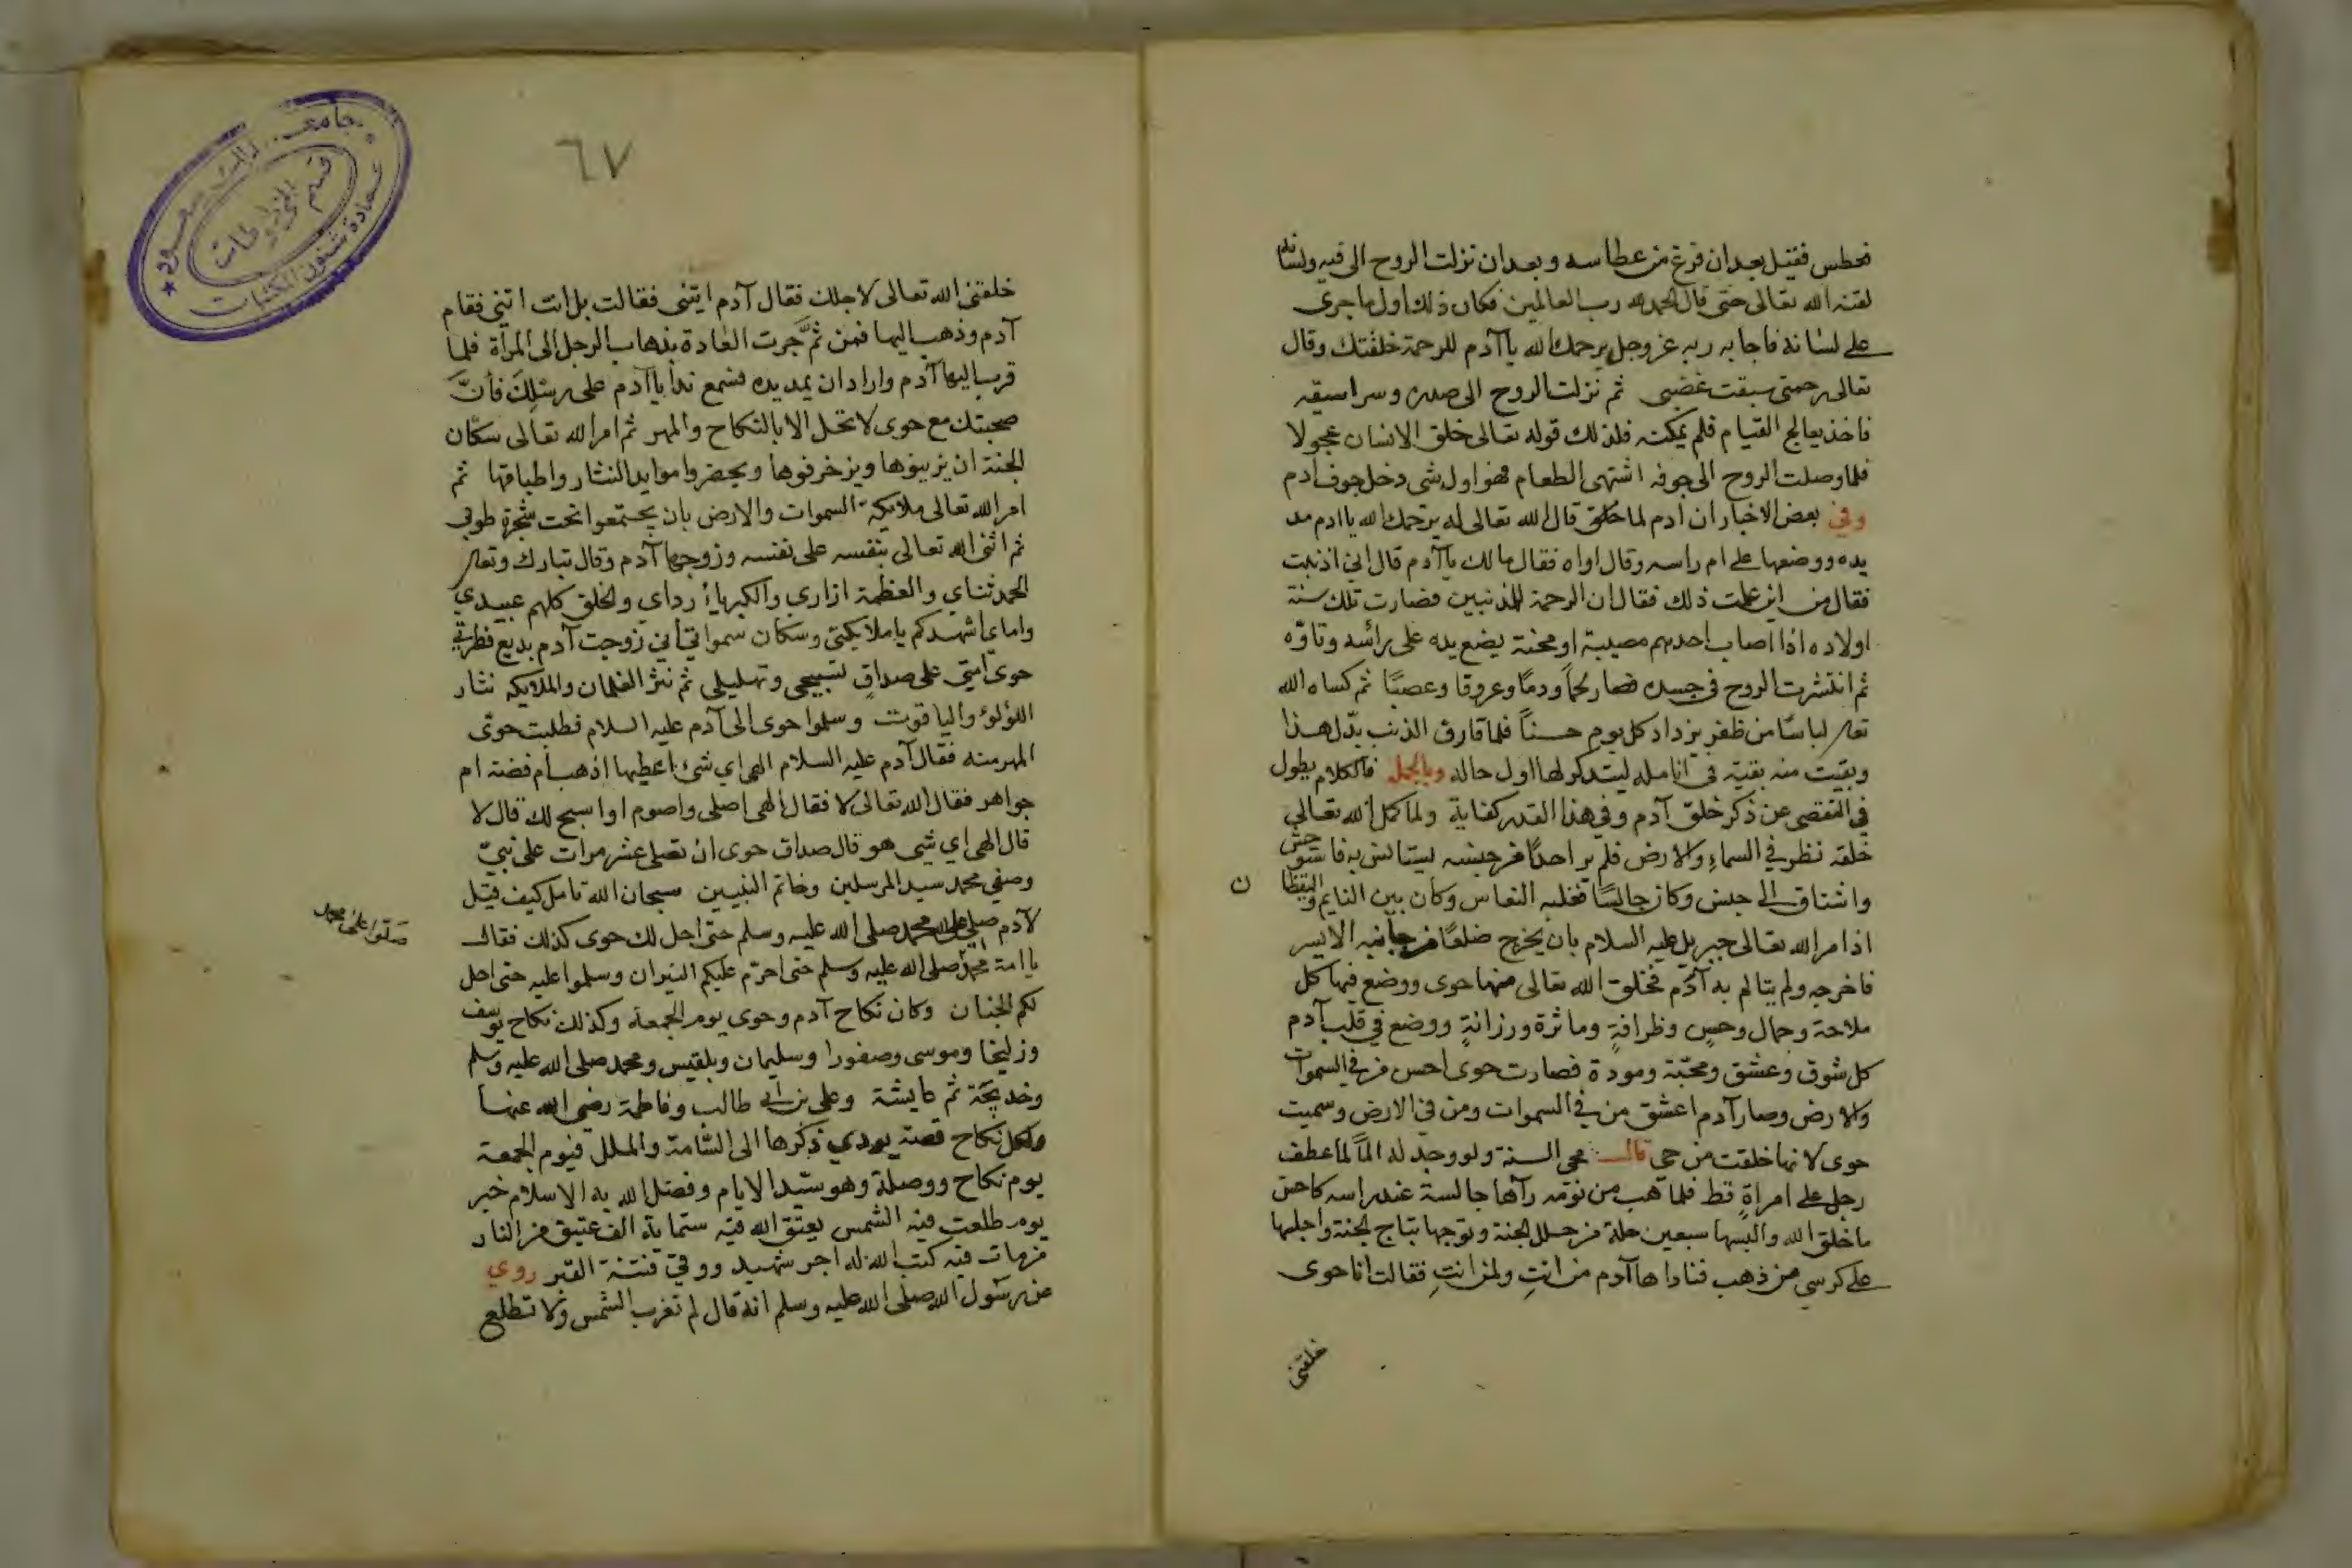 فعطس فقيل بعد ان فرغ من عطاسه وبعد ان نزلت الروح الى فيه ولسانه
لقنه الله تعالى حتى قال الحمد لله رب العالمين فكان ذلك اول ما جرى
على لسانه فاجابه ربه عز وجل يرحمك الله يا آدم للرحمة خلقتك وقال
تعالى رحمتى سبقت غضبى ثم نزلت الروح الى صدره وسراسيفه
فاخذ يعالج القيام فلم يمكنه فلذلك قوله تعالى خلق الانسان عجولا
فلما وصلت الروح الى جوفه اشتهى الطعام فهو اول شى دخل جوف ادم
وفي بعض الاخبار ان ادم لما خلق قال الله تعالى له يرحمك الله يا ادم مد
يده ووضعها على ام راسه وقال اواه فقال مالك يا آدم قال اني اذنبت
فقال من اين علمت ذلك فقال ان الرحمة للمذنبين فصارت تلك سنة
اولاده اذا اصاب احدهم مصيبة او محنة يضع يده على رأسه وتاوّه
ثم انتشرت الروح في جسده فصار لحمًا ودمًا وعروقا وعصبًا ثم كساه الله
تعالى لباسًا من ظفر يزداد كل يوم حسنًا فلما قارف الذنب بدّل هذا
وبقيت منه بقيّة في انامله ليتذكر لها اول حاله وبالجملة فالكلام يطول
في التقصى عن ذكر خلق آدم وفي هذا القدر كفاية ولما كمل الله تعالى
خلقه نظر في السماء والارض فلم ير احدًا من جنسه ليستانس به فاستوحش
واشتاق الى جنس وكان جالسًا فغلبه النعاس وكان بين النايم واليقظان
اذا مر الله تعالى جبريل عليه السلام بان يخرج ضلعًا من جانبه الايسر
فاخرجه ولم يتالم به آدم فخلق الله تعالى منها حوى ووضع فيها كل
ملاحة وجمال وحسن وظرافة وماثرة ورزانة ووضع في قلب آدم
كل شوق وعشق ومحبّة ومودة فصارت حوى احسن من في السموات
والارض وصار آدم اعشق من في السموات ومن في الارض وسميت
حوى لانها خلقت من حي قال محي السنة ولو وجد له المًا لما عطف
رجل على امراة قط فلما هب من نومه رآها جالسة عند راسه كاحسن
ما خلق الله والبسها سبعين حلة من حلل الجنة وتوجها بتاج الجنة واجلسها
على كرسي من ذهب فناداها آدم من انتِ ولمن انتِ فقالت انا حوى
خلقني
٦٧
جامعة الملك سعود
عمادة شئون المكتبات
قسم المخطوطات
خلقني الله تعالى لاجلك فقال آدم ايتنى فقالت بل انت اتني فقام
آدم وذهب اليها فمن ثمَّ جرت العادة بذهاب الرجل الى المرأة فلما
قرب اليها آدم واراد ان يمد يده فسمع ندأ يا آدم على رسلك فأنَّ
صحبتك مع حوى لا تحل الا بالنكاح والمهر ثم امر الله تعالى سكّان
الجنة ان يزينوها ويزخرفوها ويحضروا موايد النثار واطباقها ثم
امر الله تعالى ملايكة السموات والارض بان يجتمعوا تحت شجرة طوبى
ثم اثنى الله تعالى بنفسه على نفسه وزوجها آدم وقال تبارك وتعالى
الحمد ثناي والعظمة ازاري والكبرياء رداي والخلق كلهم عبيدي
واماي اشهدكم يا ملايكتي وسكان سمواتي أني زوجت آدم بديع فطرتي
حوى امتي على صداق تسبيحي وتهليلي ثم نثر الغلمان والملايكه نثار
اللؤلؤ والياقوت وسلموا حوى الى آدم عليه السلام فطلبت حوّى
المهر منه فقال آدم عليه السلام الهي اي شئ اعطيها اذهب أم فضة ام
جواهر فقال الله تعالى لا فقال الهى اصلى واصوم او اسبح لك قال لا
قال الهى اي شى هو قال صداق حوى ان تصلى عشر مرات على نبيّ
وصفي محمد سيد المرسلين وخاتم النبيين سبحان الله تامل كيف قيل
لآدم صلي على محمد صلى الله عليه وسلم حتى احل لك حوى كذلك فقال
صلوا على محمد
يا امة محمد صلى الله عليه وسلم حتى احرّم عليكم النيران وسلموا عليه حتى احل
لكم الجنان وكان نكاح آدم وحوى يوم الجمعة وكذلك نكاح يوسف
وزليخا وموسى وصفورا وسليمان وبلقيس ومحمد صلى الله عليه وسلم
وخديجة ثم عايشة وعلي بن ابي طالب وفاطمة رضي الله عنها
ولكل نكاح قصة يودي ذكرها الى السّامة والملل فيوم الجمعة
يوم نكاح ووصلة وهو سيّد الايام وفضل الله به الاسلام خير
يوم طلعت فيه الشمس يعتق الله فيه ستماية الف عتيق من النار
من مات فيه كتب الله له اجر شهيد ووقي فتنة القبر روي
عن رسول الله صلى الله عليه وسلم انه قال لم تغرب الشمس ولا تطلع